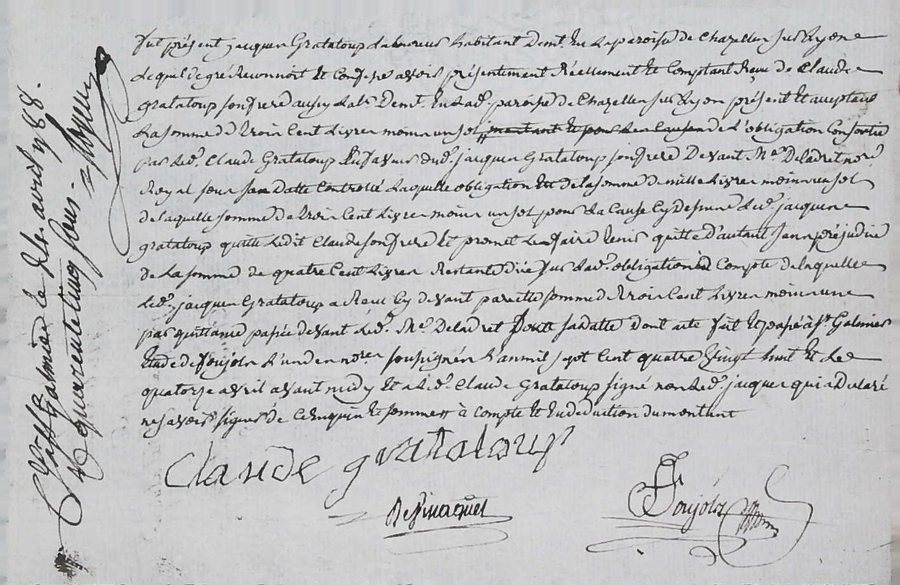 fut présent jacques Grataloup Laboureur habitant Demt En La paroisse de Chazelles sur Lyon
Lequel de gré Reconnoit Et Confesse avoir présentement Réellement Et Comptant Reçu de Claude
grataloup son frere aussy Labr Demt En Lad. paroisse de Chazelles sur Lyon présent Et acceptant
La somme de trois Cent Livres moins un sol De L'obligation Consentie
par Led. Claude Grataloup En faveur dud. jacques Grataloup son frere Devant Me Deladret nore
Royal sous sa datte Controllé Laquelle obligation Est de la somme de mille Livres moins un sol
de laquelle somme de trois Cent Livres moins un sol pour La Cause Cy Dessus Led. jacques
grataloup quitte Ledit Claude son frere Et promet Le faire tenir quitte D'autant sans préjudice
de La somme de quatre Cent Livres Restante düe sur Lad. obligation Compte de laquelle
Led. jacques Grataloup a Reçu Cy devant pareille somme de trois Cent Livres moins un
par quittance passée devant Led. Me Deladret sa datte dont acte fait Et passé à St Galmier
Etude de Poujols L'un des nores soussignés L'an mil sept Cent quatre Vingt huit Et Le
quatorze avril avant midy Et a Led. Claude Grataloup signé non Led. jacques qui a Déclaré
ne savoir signer de Ce Enquis Et sommé à Compte Et En déduction du montant
Claude grataloup
Poujols
St Galmier le avril 1788.
quarente cinq sous